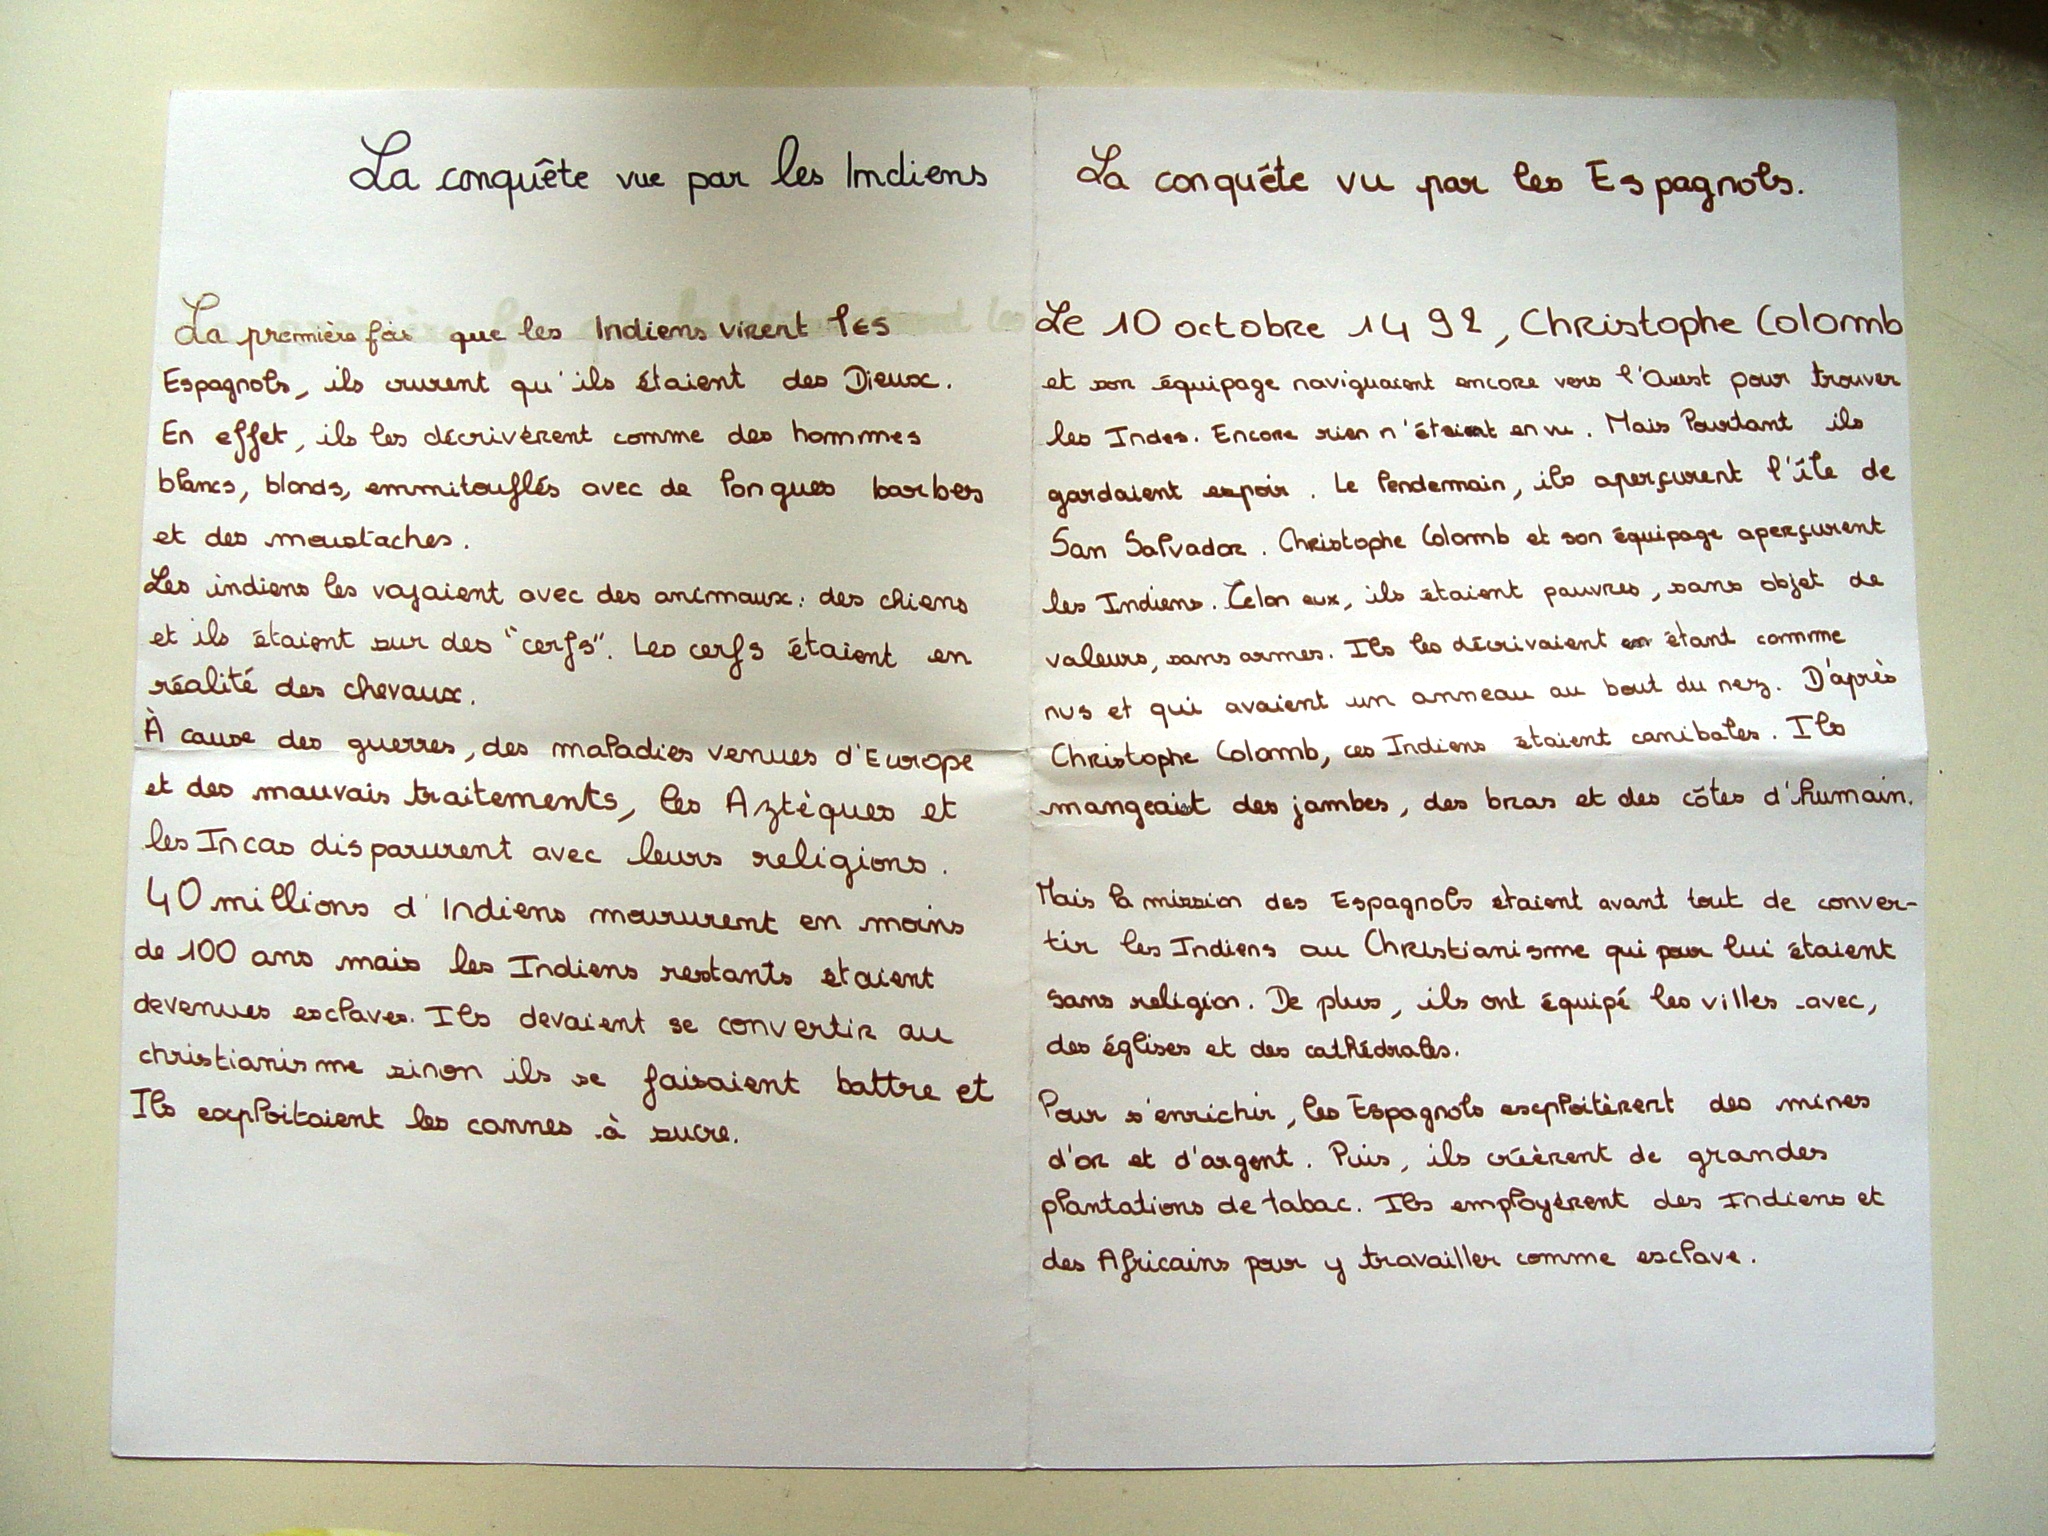 La conquête vue par les Indiens
La première fois que les Indiens virent les
Espagnols, ils crurent qu'ils étaient des Dieux.
En effet, ils les décrivèrent comme des hommes
blancs, blonds, emmitouflés avec de longues barbes
et des moustaches.
Les indiens les voyaient avec des animaux : des chiens
et ils étaient sur des "cerfs". Les cerfs étaient en
réalité des chevaux.
À cause des guerres, des maladies venues d'Europe
et des mauvais traitements, les Aztèques et
les Incas disparurent avec leurs religions.
40 millions d'Indiens moururent en moins
de 100 ans mais les Indiens restants étaient
devenues esclaves. Ils devaient se convertir au
christianisme sinon ils se faisaient battre et
Ils exploitaient les cannes à sucre.
La conquête vu par les Espagnols.
Le 10 octobre 1492, Christophe Colomb
et son équipage naviguaient encore vers l'Ouest pour trouver
les Indes. Encore rien n'étaient en vu. Mais Pourtant ils
gardaient espoir. Le lendemain, ils aperçurent l'île de
San Salvador. Christophe Colomb et son équipage aperçurent
les Indiens. Celon eux, ils étaient pauvres, sans objet de
valeurs, sans armes. Ils les décrivaient étant comme
nus et qui avaient un anneau au bout du nez. D'après
Christophe Colomb, ces Indiens étaient canibales. Ils
mangeait des jambes, des bras et des côtes d'humain.
Mais la mission des Espagnols étaient avant tout de conver-
tir les Indiens au Christianisme qui pour lui étaient
sans religion. De plus, ils ont équipé les villes avec,
des églises et des cathédrales.
Pour s'enrichir, les Espagnols exploitèrent des mines
d'or et d'argent. Puis, ils créèrent de grandes
plantations de tabac. Ils employèrent des Indiens et
des Africains pour y travailler comme esclave.